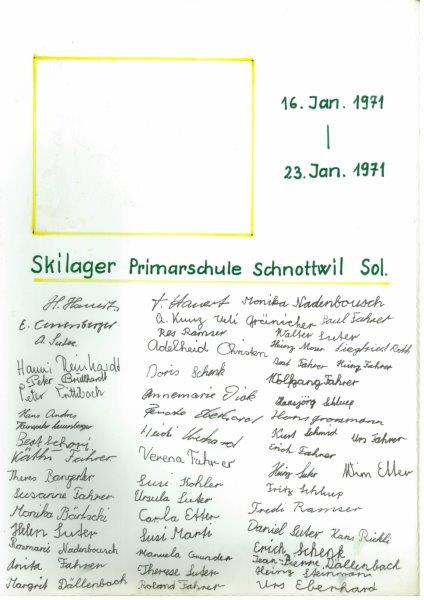 16. Jan. 1971
|
23. Jan. 1971
Skilager Primarschule Schnottwil Sol.
Monika Nadenbousch
A. Kunz Ueli Gränicher Paul Fahrer
A. Suter Res Ramser Walter Suter
Adelheid Christen Heinz Moser Siegfried Roth
Hanni Reinhardt Beat Fahrer Heinz Fahrer
Peter Doris Schenk Wolfgang Fahrer
Peter Annemarie Dick Hansjörg Schluep
Hans Andres Renate Eberhard
Kurt Schmid Urs Fahrer
Beat Schori Heidi Erich Fahrer
Käthi Fahrer Verena Fahrer Wim Etter
Theres Bangerter Susi Kohler Heinz Suter
Susanne Fahrer Ursula Suter Fritz Schluep
Monika Bärtschi Carla Etter Fredi Ramser
Helen Suter Susi Marti Daniel Suter Hans Rickli
Rosmarie Nadenbousch Manuela Erich Schenk
Anita Fahrer Therese Suter Jean-Pierre Dällenbach
Heinz
Margrit Dällenbach Roland Fahrer Urs Eberhard